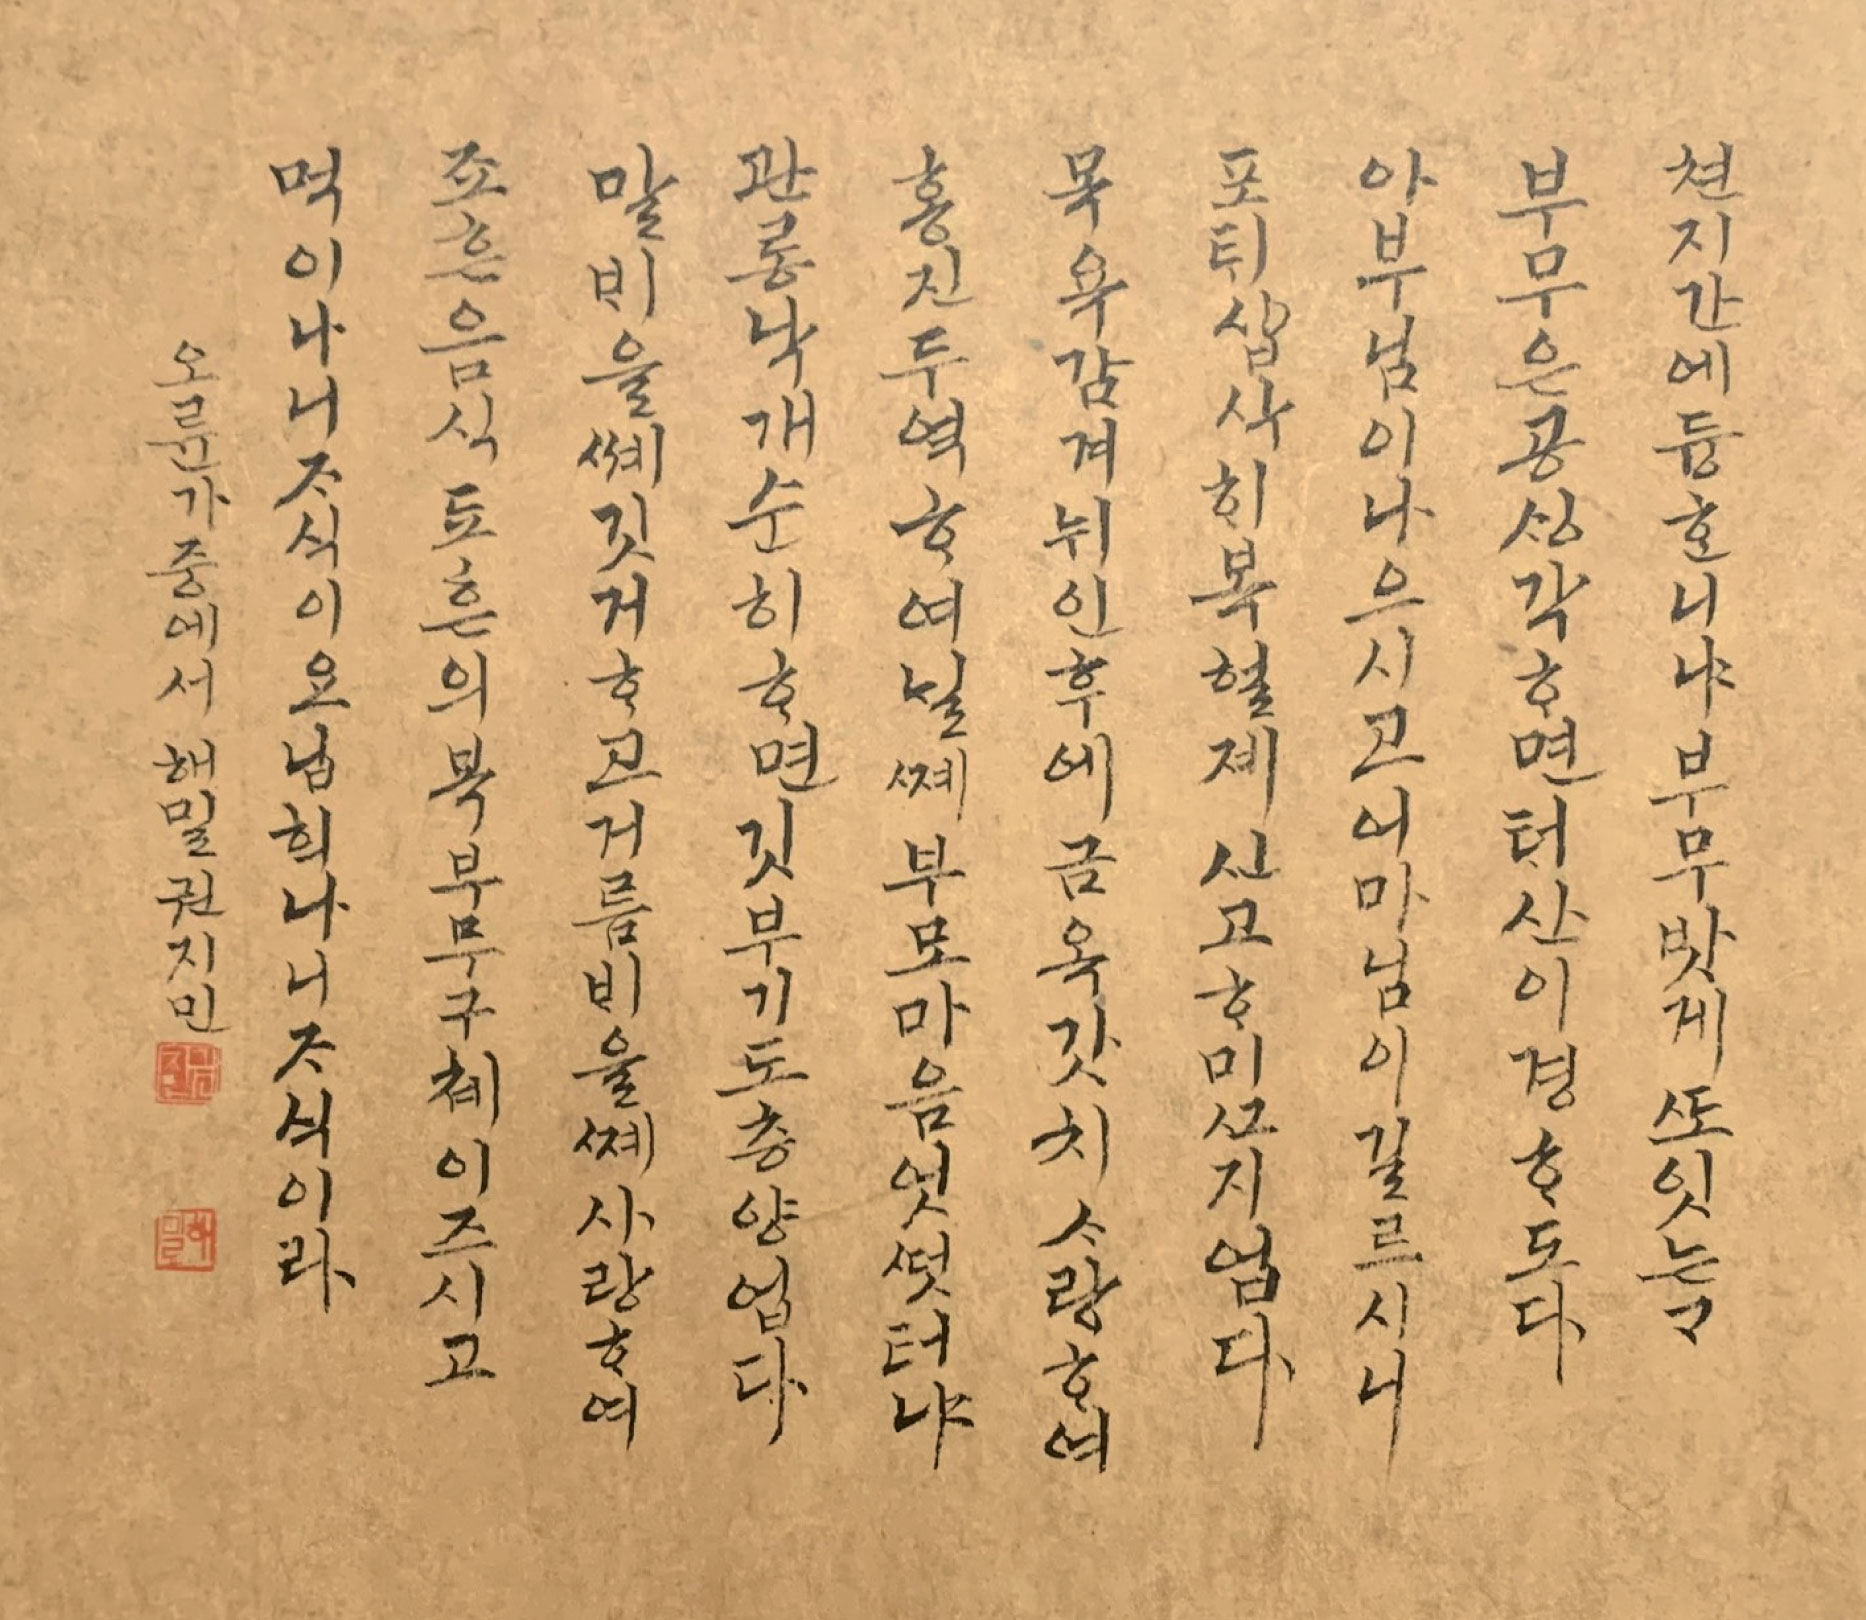 쳔지간에듕ᄒᆞ니냐부무밧게ᄯᅩ잇ᄂᆞᆫ가
부무은공ᄉᆡᆼ각ᄒᆞ면ᄐᆡ산이경ᄒᆞ도다
아부님이나으시고어마님이길르시니
포ᄃᆡ삽삭히복혈졔신고ᄒᆞ미ᄭᅳᆫ지업다
목욕감겨뉘인후에금옥갓치ᄉᆞ랑ᄒᆞ여
홍진두역ᄒᆞ여닐ᄶᅦ부모마음엇ᄯᅥᆺ터냐
관롱낙개순히ᄒᆞ면깃부기도층양업다
말ᄇᆡ울ᄶᅦ깃거ᄒᆞ고거름ᄇᆡ울ᄶᅦ사랑ᄒᆞ여
죠흔음식 됴흔의복부무구쳬이즈시고
먹이나니ᄌᆞ식이요납희나니ᄌᆞ식이라
오륜가중에서 해밀권지민